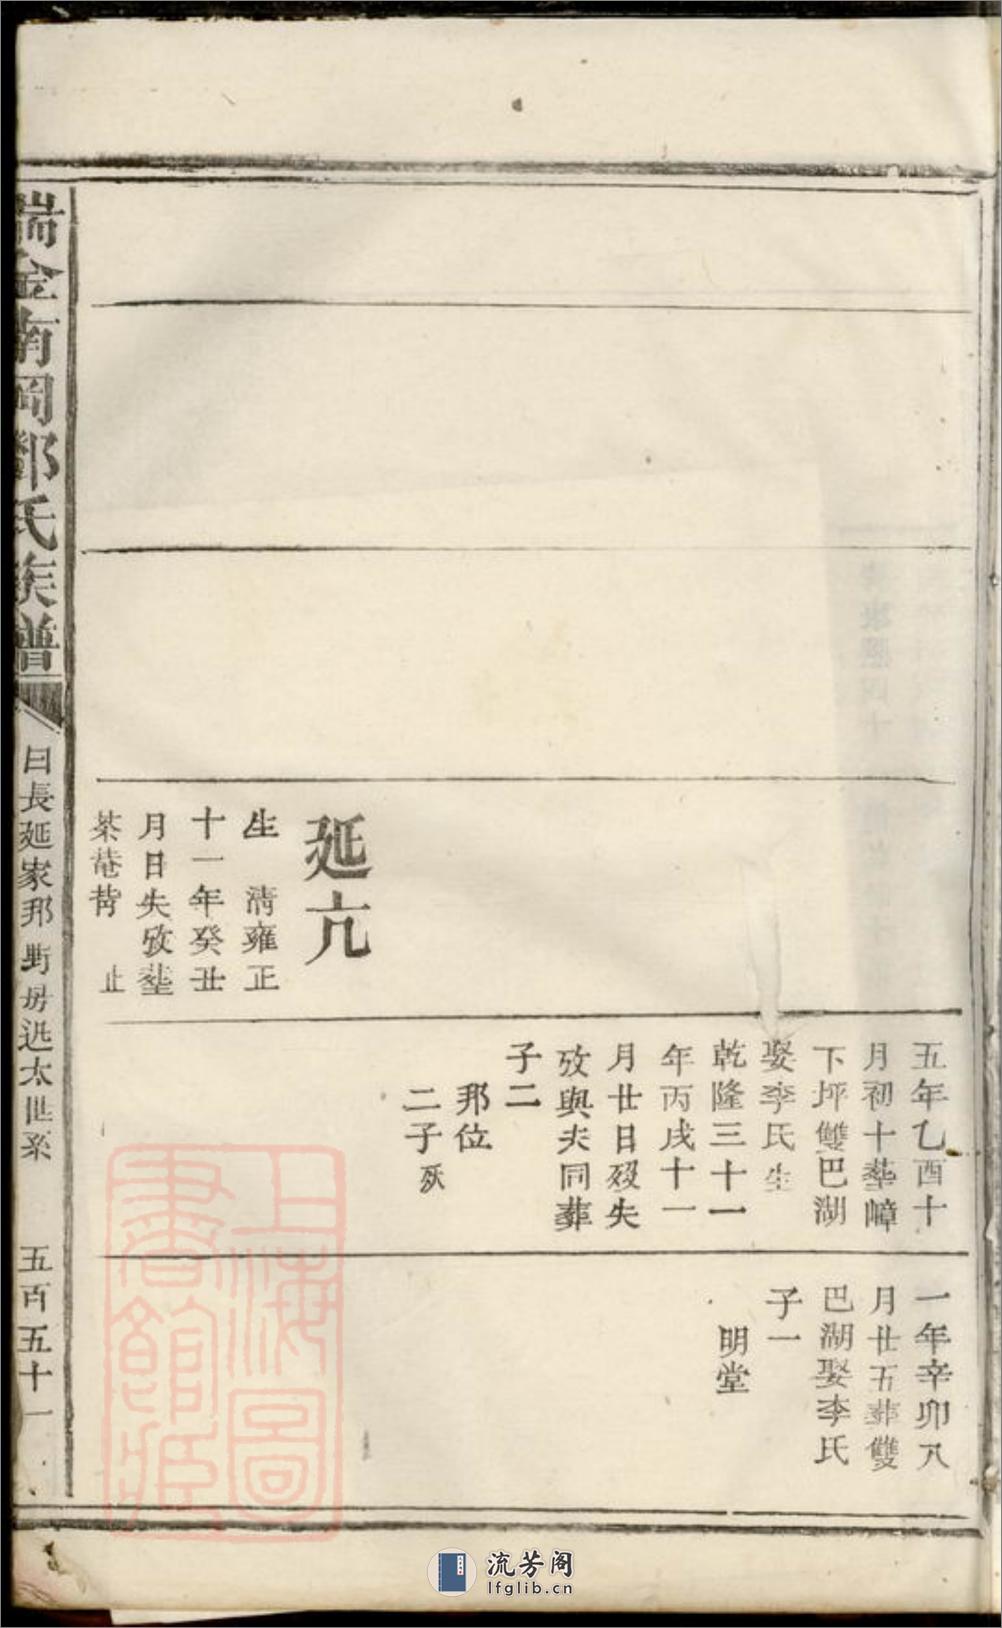 延亢
生　清雍正
十一年癸丑
月日失攷塟
茶菴背　止
五年乙酉十
月初十塟嶂
下坪雙巴湖
娶李氏生
乾隆三十一
年丙戌十一
月廿日歿失
攷與夫同葬
子二
邦位
二子殀
一年辛卯八
月廿五葬雙
巴湖娶李氏
子一
明堂
瑞金南岡鄧氏族譜
日長延家邦
太世系
五百五十一
上海圖
書館藏
流芳阁
lfglib.cn